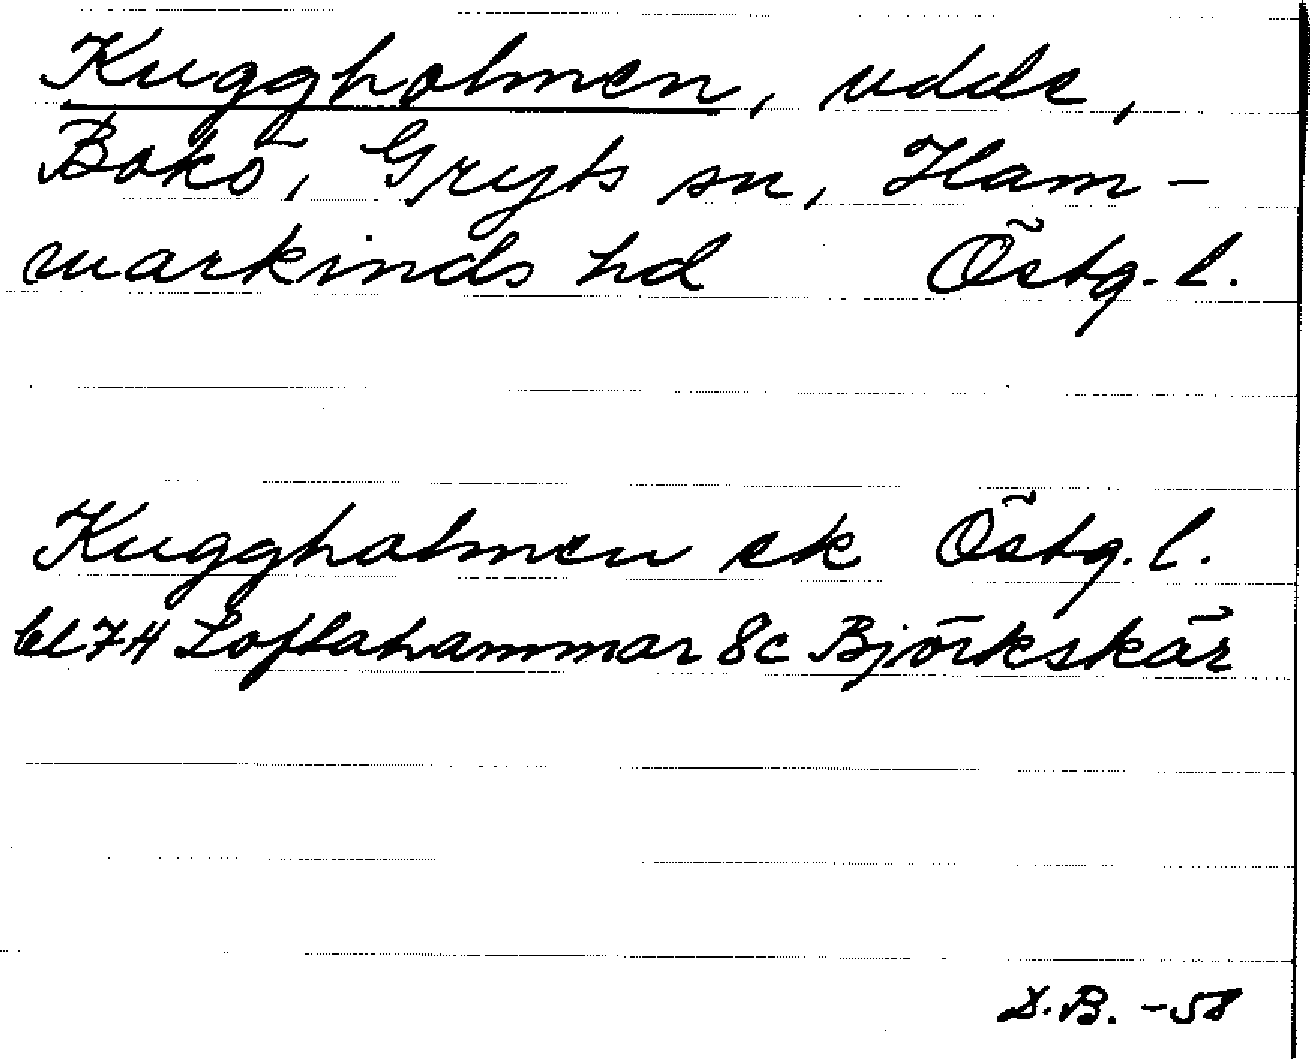 Kuggholmen, udde,
Bokö, Gryts sn, Ham-
markinds hd Östg. l.
Kuggholmen ek Östg. l.
bl 7H Loftahammar 8c Björkskär
D.B. -58